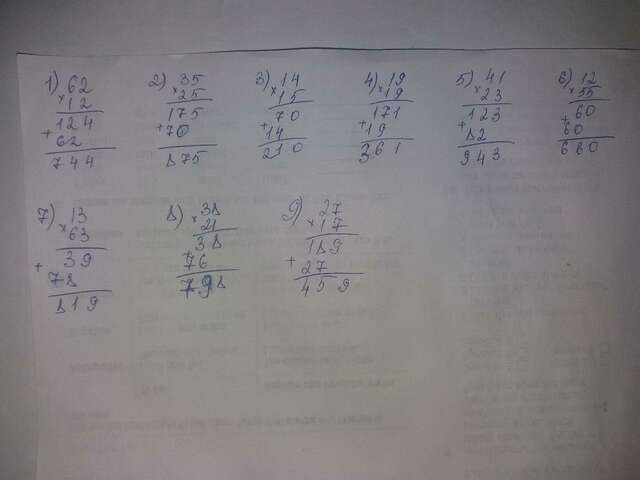 1) 62
× 12
124
+ 62
744
2) 35
× 25
175
+ 70
875
3) 14
× 15
70
+ 14
210
4) 19
× 19
171
+ 19
361
5) 41
× 23
123
+ 82
943
6) 12
× 55
60
+ 60
660
7) 13
× 63
39
+ 78
819
8) 38
× 21
38
+ 76
798
9) 27
× 17
189
+ 27
459